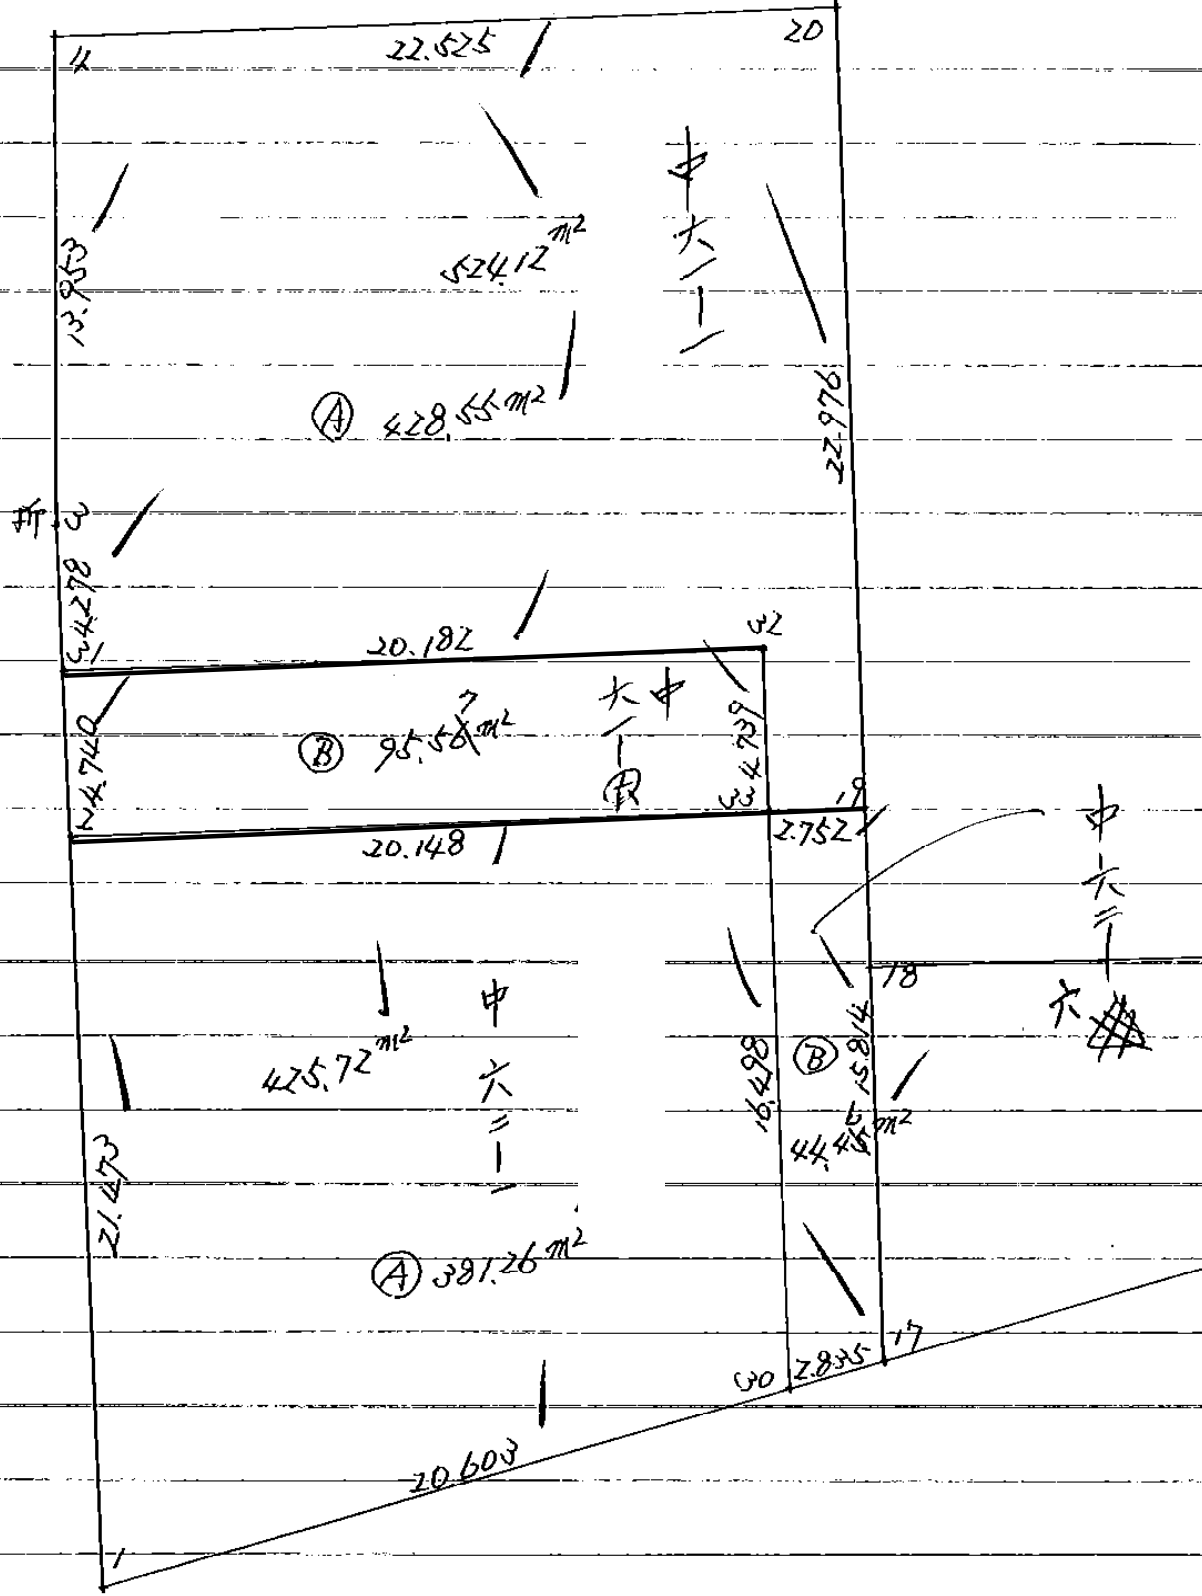 4
22.525
20
13.953
524.12 m²
中六二一一
Ⓐ 428.55 m²
22.976
折 3
4.278
31
20.182
32
4.740
Ⓑ 95.57 m²
中
六二一
4.739
33
19
2
20.148
2.752
中六二一
18
六
425.72 m²
中六二一一
16.498
Ⓑ
15.814
44.46 m²
21.473
Ⓐ 381.26 m²
17
30
2.835
20.603
1